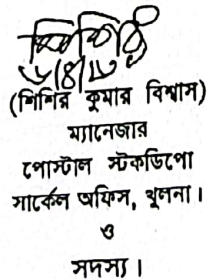 (শিশির কুমার বিশ্বাস)
ম্যানেজার
পোস্টাল স্টকডিপো
সার্কেল অফিস, খুলনা।
ও
সদস্য।